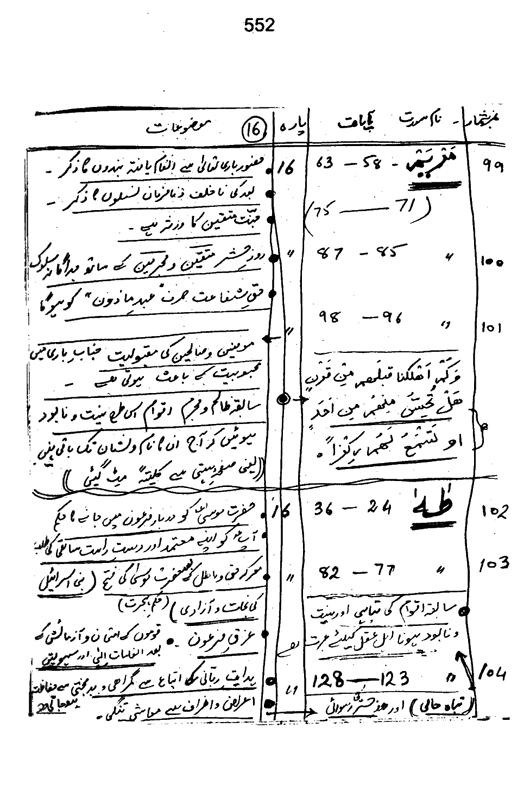 552
نمبرشمار - نام سورت آیات پارہ (16) موضوعات
99 مَریَم - 58 — 63 16 حضور باری تعالیٰ سے انعام یافتہ بندوں کا ذکر -
بعد کی ناخلف نافرمان نسلوں کا ذکر -
(71 — 75) جنّت متقین کا ورثہ ہے -
100 " 85 — 87 " روزِ حشر متقین و مجرمین کے ساتھ جداگانہ سلوک
حقِ شفاعت صرف "عبدِ ماذون" کو ہوگا
101 " 96 — 98 "
مومنین و صالحین کی مقبولیت جناب باری میں
محبوبیت کے باعث ہوتی ہے -
وَكَمْ اَهْلَكْنَا قَبْلَهُم مِّن قَرْنٍ
هَلْ تُحِسُّ مِنْهُم مِّن اَحَدٍ
اَو تَسْمَعُ لَهُم رِكْزًا ؕ
سابقہ ظالم و مجرم اقوام اسی طرح نیست و نابود
ہوئیں کہ آج ان کا نام و نشان تک باقی نہیں
(یعنی صفحہ ہستی سے کلیتہً مٹ گئیں)
102 طٰہٰ 24 — 36 16 حضرت موسیٰؑ کو دربار فرعون میں جانے کا حکم
آپؑ کو اپنے معتمد اور دست راست ساتھی کی طلب
103 " 77 — 82 " معرکہ حق و باطل کے حضرت موسیٰؑ کی فتح (بنی اسرائیل
کی نجات و آزادی) (حکم ہجرت)
غرقِ فرعون - قوموں کے امتحان و آزمائش کے
بعد انعامات الٰہی اور
سابقہ اقوام کی تباہی اور نیست
و نابود ہونا اہل عقل کیلئے عبرت ہے
104 " 123 — 128 " ہدایت ربانی کے اتباع سے گمراہی و بدبختی سے حفاظت
اعراض و انحراف سے معاشی تنگی -
(تباہ حالی) اور حشر کی رسوائی